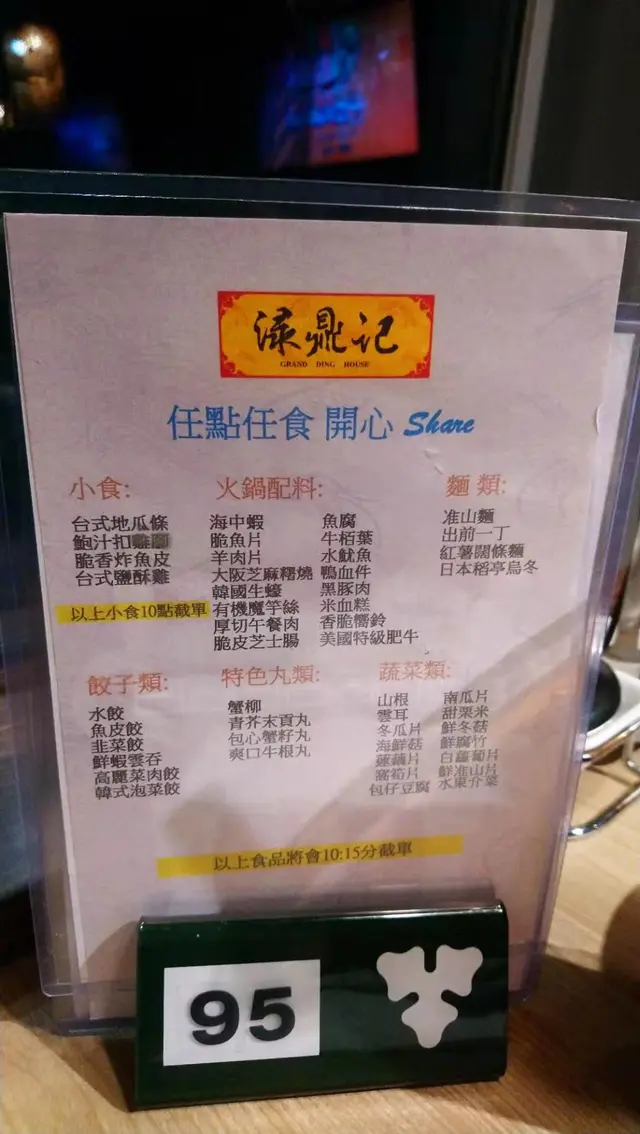 渌鼎记
GRAND DING HOUSE
任點任食 開心 Share
小食:
台式地瓜條
鮑汁扣雞腳
脆香炸魚皮
台式鹽酥雞
以上小食10點截單
火鍋配料:
海中蝦
脆魚片
羊肉片
大阪芝麻糬燒
韓國生蠔
有機魔竽絲
厚切午餐肉
脆皮芝士腸
魚腐
牛栢葉
水魷魚
鴨血件
黑豚肉
米血糕
香脆嚮鈴
美國特級肥牛
麵 類:
准山麵
出前一丁
紅薯闊條麵
日本稻亭烏冬
餃子類:
水餃
魚皮餃
韭菜餃
鮮蝦雲吞
高麗菜肉餃
韓式泡菜餃
特色丸類:
蟹柳
青芥末貢丸
包心蟹籽丸
爽口牛根丸
蔬菜類:
山根
雲耳
冬瓜片
海鮮菇
蓮藕片
窩筍片
包仔豆腐
南瓜片
甜粟米
鮮冬菇
鮮腐竹
白蘿蔔片
鮮准山片
水東介菜
以上食品將會10:15分截單
95